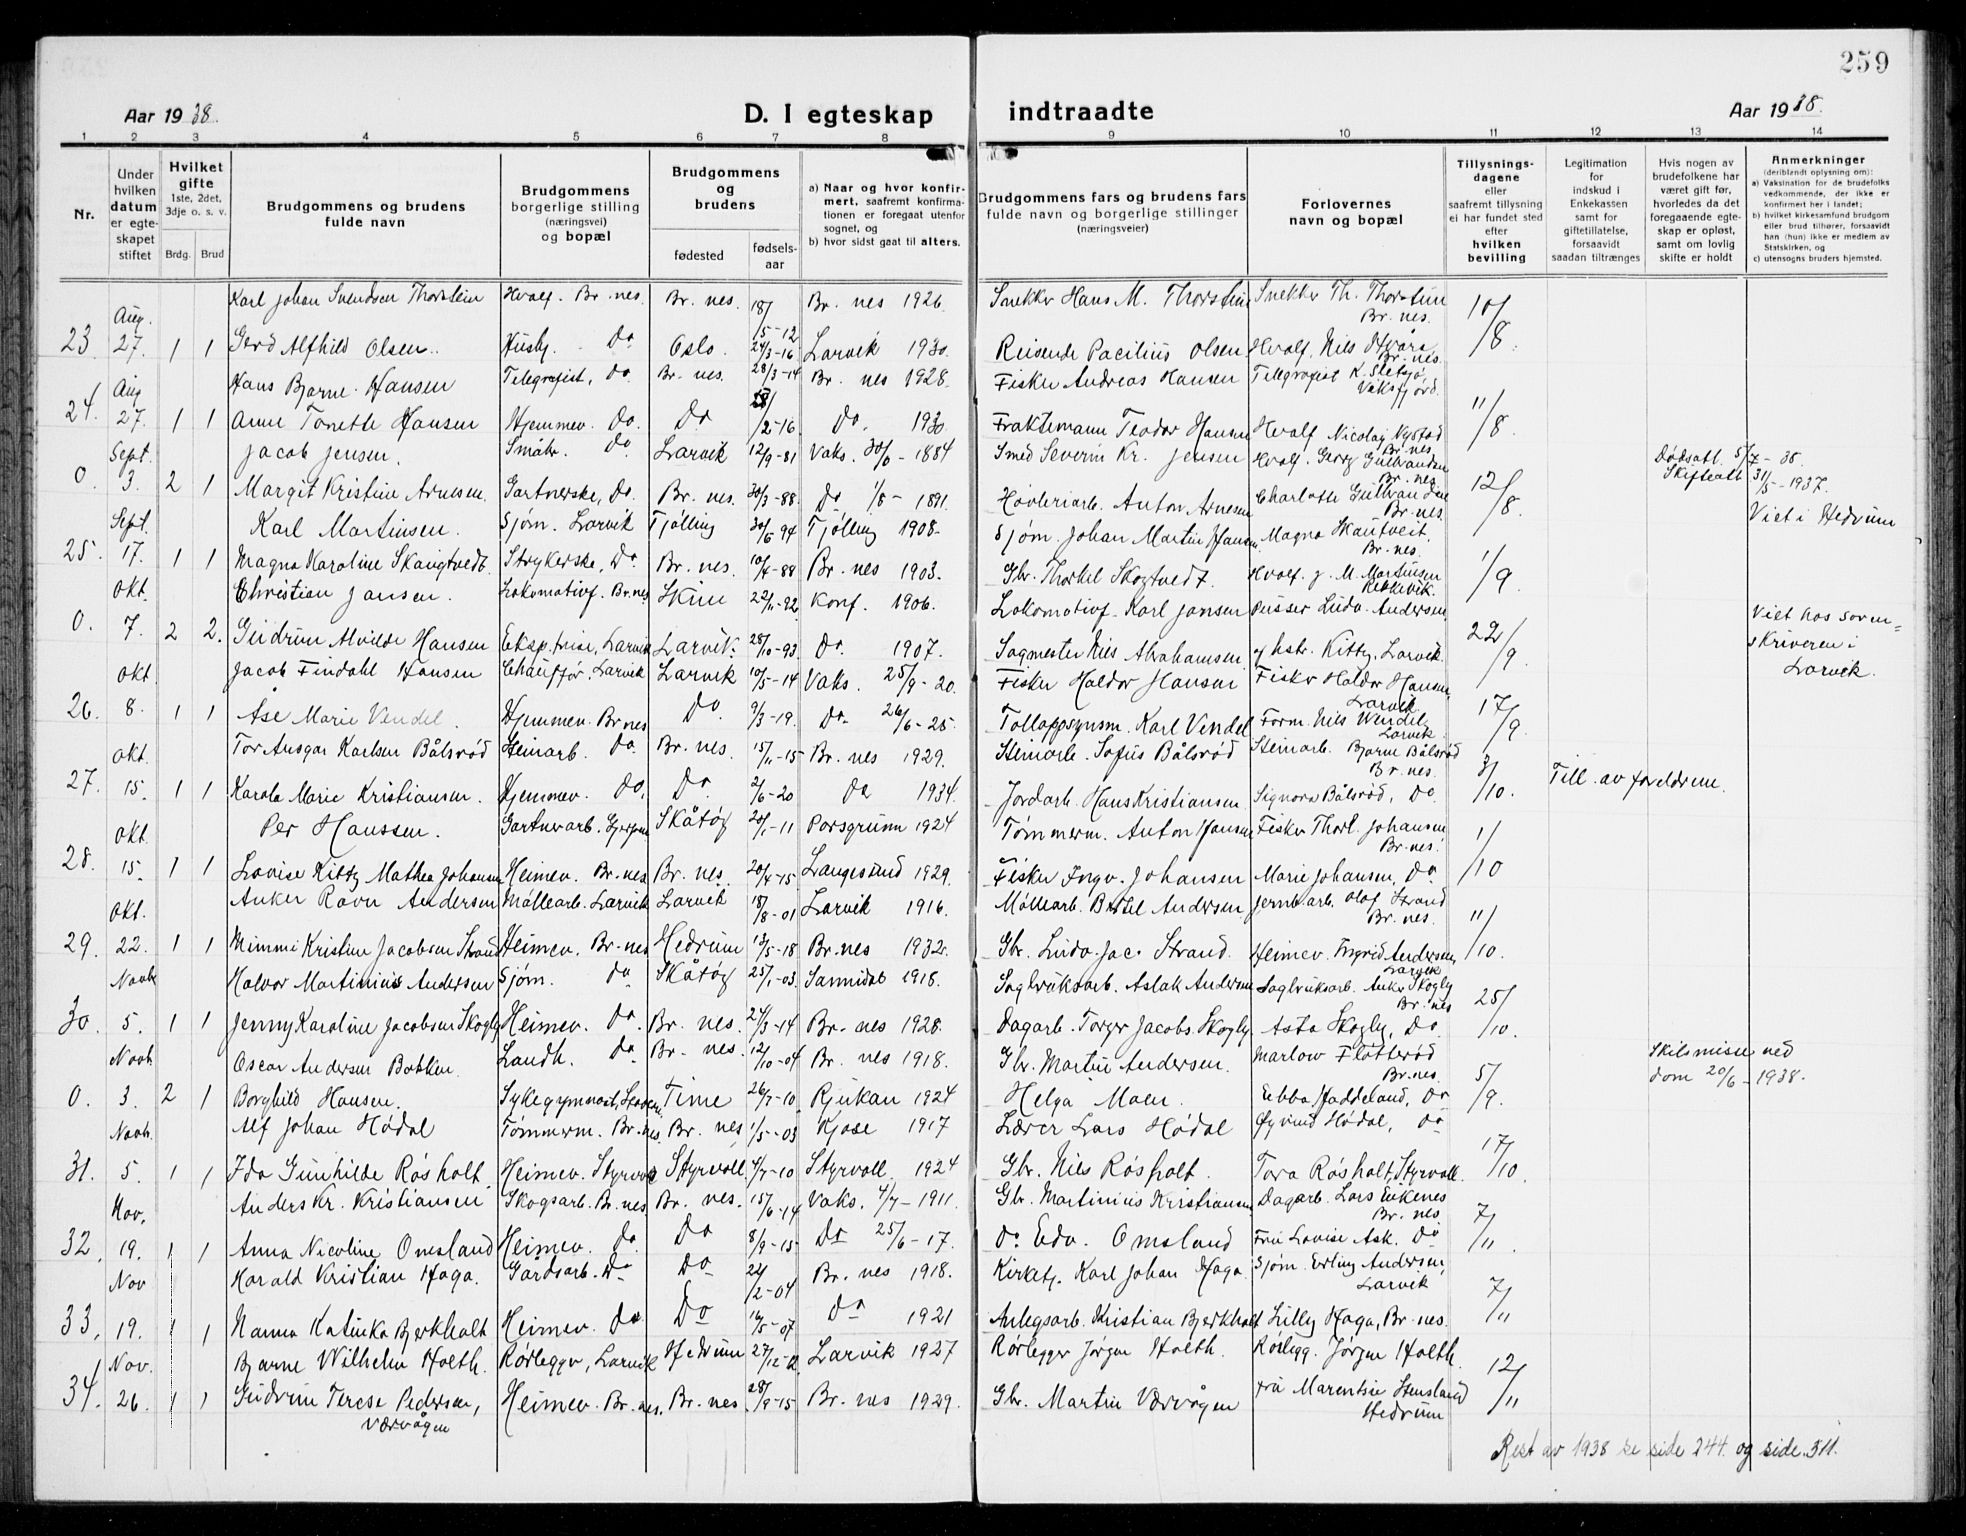 259
Aar 1938.
D. I egteskap indtraadte
Aar 1938.
1 2 3 4 5 6 7 8 9 10 11 12 13 14
Nr.
Under hvilken datum er egteskapet stiftet
Hvilket gifte 1ste, 2det, 3dje o. s. v.
Brdg. Brud
Brudgommens og brudens fulde navn
Brudgommens borgerlige stilling (næringsvei) og bopæl
Brudgommens og brudens
fødested
fødselsaar
a) Naar og hvor konfirmert, saafremt konfirmationen er foregaat utenfor sognet, og
b) hvor sidst gaat til alters.
Brudgommens fars og brudens fars fulde navn og borgerlige stillinger (næringsveier)
Forlovernes navn og bopæl
Tillysningsdagene eller saafremt tillysning ei har fundet sted efter hvilken bevilling
Legitimation for indskud i Enkekassen samt for giftetillatelse, forsaavidt saadan tiltrænges
Hvis nogen av brudefolkene har været gift før, hvorledes da det foregaaende egteskap er opløst, samt om lovlig skifte er holdt
Anmerkninger (deriblandt oplysning om):
a) Vaksination for de brudefolks vedkommende, der ikke er konfirmert her i landet;
b) hvilket kirkesamfund brudgom eller brud tilhører, forsaavidt han (hun) ikke er medlem av Statskirken, og
c) utensogns bruders hjemsted.
Aug. Karl Johan Svendsen Thorstein Hvalf. Br.nes. Br. nes. 18/5-12 Br. nes 1926. Snekker Hans M. Thorstein Snekker Th. Thorstein Br. nes. 10/8
23. 27. 1 1 Gerd Alfhild Olsen. Husby. Do Oslo. 24/3-16 Larvik 1930. Reisende Pacilius Olsen Hvalf. Nils Br. nes.
Aug Hans Bjarne Hansen Telegrafist, do. Br. nes. 28/3-14 Br. nes 1928. Fisker Andreas Hansen Telegrafist K. 11/8
24. 27. 1 1 Anne Tonette Hansen Hjemmev. Do. Do /2-16 Do. 1930. Fraktemann Teodor Hansen Hvalf Nicolay Nystad Br. nes
Sept. Jacob Jensen. Småbr. Do Larvik 12/9-81 Vaks. 30/6-1884 Smed Severin Kr. Jensen Hvalf. Georg Gulbrandsen Br. nes 12/8 Dødsatt. 5/7-38.
0. 3. 2 1 Margit Kristine Arnesen. Gartnerske, Do. Br. nes. 30/3-88 Do 1/8-1891. Høvleriarb. Anton Arnesen Charlotte Br. nes. Skifteatt 31/5-1937. Viet i Hedrum
Sept. Karl Martinsen. Sjøm. Larvik Tjølling 30/6 94 Tjølling 1908. Sjøm. Johan Martin Hansen Magna Skautveit. Br. nes. 1/9
25. 17. 1 1 Magna Karoline Skaugtvedt. Strykerske, Do Br. nes. 10/4-88 Br. nes 1903. Gbr. Thorkel Skogtvedt. Hvalf. J. M. Martinsen Rekkevik.
Okt. Christian Jansen. Lokomotivf. Br.nes Skien 22/11-92 Konf. 1906. Lokomotivf. Karl Jansen Pusser Ludv. Andersen 22/9 Viet hos soren=
0. 7. 2 2. Gudrun Alvilde Hansen Eksp.trise, Larvik Larvik. 28/10-93 Do. 1907. Sagmester Nils Abrahamsen. Kitty. Larvik. skriveren i Larvik.
Okt Jacob Findahl Hansen Chauffør, Larvik Larvik 10/5-14 Vaks. 25/9-20. Fisker Haldor Hansen Fisker Haldor Hansen Larvik 17/9
26. 8. 1 1 Åse Marie Vendel. Hjemmev. Br nes Do. 9/3-19. Do. 26/6-25. Tolloppsynsm. Karl Vendel Form. Nils Wendel Larvik
Okt. Tor Ansgar Karlsen Bålsrød Steinarb. Do. Br. nes. 15/11-15 Br. nes 1929. Steinarb. Sofus Bålsrød Steinarb. Bjarne Bålsrød Br. nes. 3/10.
27. 15. 1 1 Karola Marie Kristiansen. Hjemmev. Do. Do. 2/6-20 Do 1934. Jordarb. Hans Kristiansen Signora Bålsrød, Do. Till. av foreldrene.
Okt. Per Hanssen. Gartnerarb. Skåtøy 20/1-11 Porsgrunn 1924 Tømmerm. Anton Hansen Fisker Thorl. Johansen Br. nes. 1/10
28. 15. 1 1 Lovise Kitty Mathea Johansen Heimev. Br. nes Br. nes. 20/4-15 Langesund 1929. Fisker Ingv. Johansen Marie Johansen, Do
Okt. Anker Ravn Andersen Møllearb. Larvik Larvik 18/8-01 Larvik 1916. Møllearb. Bertel Andersen Jernb.arb. Olaf Strand Br. nes. 11/10.
29. 22. 1 1 Mimmi Kristine Jacobsen Strand Heimev. Br. nes Hedrum 13/5-18 Br. nes 1932. Gbr. Ludv. Jac. Strand. Heimev. Ingrid Andersen, Larvik
Novb Halvor Martinius Andersen Sjøm. Do Skåtøy 25/1-03. Sannidal 1918. Sagbruksarb. Aslak Andersen Sagbruksarb. Anker Skogly Br. nes 25/10.
30. 5. 1 1 Jenny Karoline Jacobsen Skogly Heimev. Do. Br. nes. 24/3-14 Br. nes 1928. Dagarb. Torger Jacobs. Skogly Asta Skogly, Do
Novb. Oscar Andersen Bakken. Landh. Do Br. nes. 12/10-04 Br. nes 1918. Gbr. Martin Andersen. Marlow Fløtterød Br. nes. 5/9. Skilsmisse ved
0. 3. 2 1 Borghild Hansen. Sykegymnast, Time 26/7-10. Rjukan 1924 Helga Moen Ebba Haddeland, Do dom 20/6-1938.
Novb. Alf Johan Hødal Tømmerm. Br. nes. Br. nes 1/5-03 Kjose 1917 Lærer Lars Hødal Øyvind Hødal, Do 17/10.
31. 5. 1 1 Ida Gunhilde Røsholt. Heimev. Styrvoll Styrvoll 4/7-10 Styrvoll 1924 Gbr. Nils Røsholt. Tora Røsholt, Styrvoll.
Nov. Anders Kr. Kristiansen Skogsarb. Br. nes Br. nes. 15/6-14 Vaks. 4/7-1911. Gbr. Martinius Kristiansen Dagarb. Lars Eikenes Br. nes 7/11.
32. 19. 1 1 Anna Nicoline Omsland Heimev. Do. Do 8/9-15 Do 25/6-17. Do Edv. Omsland Fru Lovise Ask. Do
Nov Harald Kristian Haga. Gårdsarb. Do Do 24/2-04 Br. nes 1918. Kirketj. Karl Johan Haga Sjøm. Erling Andersen, Larvik 7/11
33. 19. 1 1 Nanna Katinka Bjerkholt Heimev. Do. Do 14/5-07 Do 1921 Anlegsarb. Kristian Bjerkholt Lilly Haga, Br. nes.
Nov. Bjarne Wilhelm Holth. Rørlegger, Larvik Hedrum 27/12-12 Larvik 1927 Rørlegger Jørgen Holth. Rørlegg. Jørgen Holth. 12/11
34. 26. 1 1 Gudrun Terese Pedersen, Værvågen Heimev. Br. nes. Br. nes. 28/9-15 Br. nes 1929. Gbr. Martin Værvågen Fru Marentsie Stensland Hedrum
Rest av 1938 se side 244. og side 311.